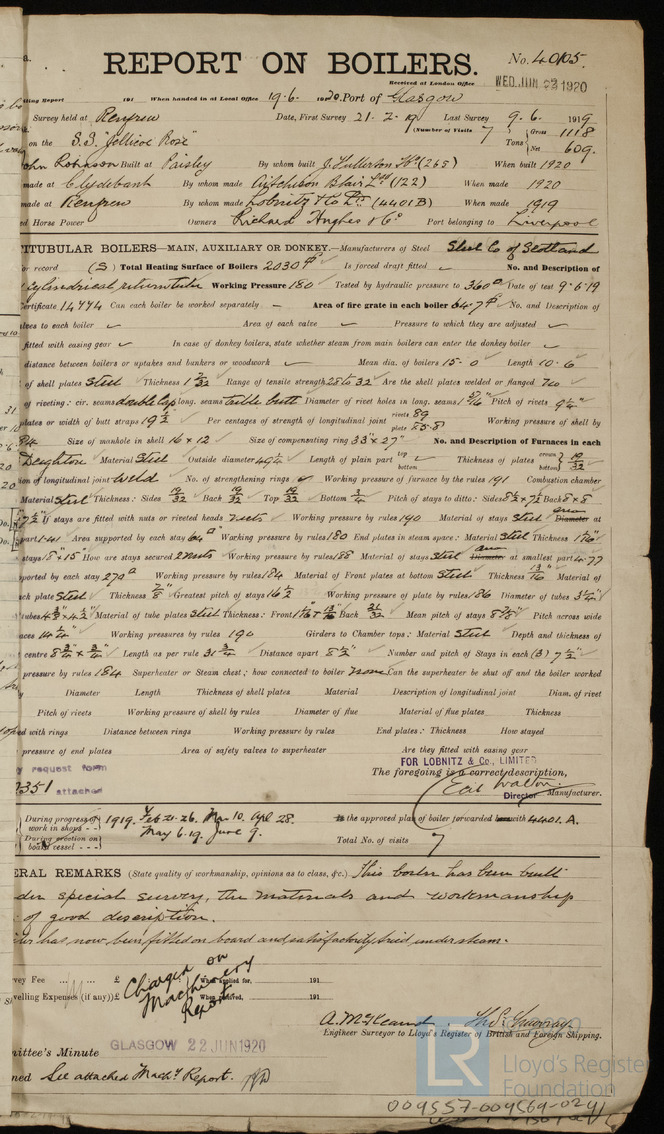 a.
REPORT ON BOILERS.
No. 40105.
Received at London Office WED. JUN 23 1920
ting Report 191 When handed in at Local Office 19·6· 1920. Port of Glasgow
Survey held at Renfrew Date, First Survey 21·2·19 Last Survey 9·6· 1919
(Number of Visits 7)
on the S.S. "Jellicoe Rose" Tons Gross 1118 Net 609.
ohn Robinson Built at Paisley By whom built J. Fullerton & Co (265) When built 1920
made at Clydebank By whom made Aitchison Blair Ltd (122) When made 1920
made at Renfrew By whom made Lobnitz & Co Ltd (4401B) When made 1919
ed Horse Power Owners Richard Hughes & Co Port belonging to Liverpool
ITUBULAR BOILERS—MAIN, AUXILIARY OR DONKEY.—Manufacturers of Steel Steel Co of Scotland
or record (S) Total Heating Surface of Boilers 2030 Is forced draft fitted No. and Description of
cylindrical return tube Working Pressure 180 Tested by hydraulic pressure to 360 Date of test 9·6·19
Certificate 14774 Can each boiler be worked separately Area of fire grate in each boiler 64·7 No. and Description of
lves to each boiler Area of each valve Pressure to which they are adjusted
fitted with easing gear In case of donkey boilers, state whether steam from main boilers can enter the donkey boiler
distance between boilers or uptakes and bunkers or woodwork Mean dia. of boilers 15-0 Length 10-6
of shell plates Steel Thickness 1 7/32 Range of tensile strength 28 to 32 Are the shell plates welded or flanged no
of riveting: cir. seams double lap long. seams treble butt Diameter of rivet holes in long. seams 1 5/16" Pitch of rivets 9 1/4"
plates or width of butt straps 19 1/2 Per centages of strength of longitudinal joint rivets 89 plate 85·8 Working pressure of shell by
184 Size of manhole in shell 16 x 12 Size of compensating ring 33" x 27" No. and Description of Furnaces in each
Deighton Material Steel Outside diameter 49 1/4 Length of plain part top bottom Thickness of plates crown bottom 19/32
ion of longitudinal joint Weld No. of strengthening rings Working pressure of furnace by the rules 191 Combustion chamber
Material Steel Thickness: Sides 19/32 Back 19/32 Top 19/32 Bottom 3/4 Pitch of stays to ditto: Sides 8 1/2 x 7 1/2 Back 8 x 8
7 1/2" If stays are fitted with nuts or riveted heads nuts Working pressure by rules 190 Material of stays Steel area Diameter at
part 1·41 Area supported by each stay 64 Working pressure by rules 180 End plates in steam space: Material Steel Thickness 1 1/16"
stays 18" x 15" How are stays secured 2 nuts Working pressure by rules 188 Material of stays Steel area Diameter at smallest part 4·77
pported by each stay 270 Working pressure by rules 184 Material of Front plates at bottom Steel Thickness 13/16 Material of
ck plate Steel Thickness 7/8 Greatest pitch of stays 16 1/2 Working pressure of plate by rules 186 Diameter of tubes 3 1/4"
tubes 4 3/8 x 4 1/2 Material of tube plates Steel Thickness: Front 1 1/16 + 13/16 Back 21/32 Mean pitch of stays 8 7/8" Pitch across wide
aces 14 1/4" Working pressures by rules 190 Girders to Chamber tops: Material Steel Depth and thickness of
centre 8 3/4 x 3/4 Length as per rule 31 3/4 Distance apart 8 1/2" Number and pitch of Stays in each (3) 7 1/2"
pressure by rules 184 Superheater or Steam chest; how connected to boiler none Can the superheater be shut off and the boiler worked
Diameter Length Thickness of shell plates Material Description of longitudinal joint Diam. of rivet
Pitch of rivets Working pressure of shell by rules Diameter of flue Material of flue plates Thickness
ed with rings Distance between rings Working pressure by rules End plates: Thickness How stayed
pressure of end plates Area of safety valves to superheater Are they fitted with easing gear
FOR LOBNITZ & Co., LIMITED
y request form
2351 attached
The foregoing is a correct description,
Director Manufacturer.
During progress of work in shops 1919. Feb 21·26. Mar 10. Apl 28. May 6·19. June 9.
During erection on board vessel
the approved plan of boiler forwarded with 4401.A.
Total No. of visits 7
ERAL REMARKS (State quality of workmanship, opinions as to class, &c.) This boiler has been built
der special survey, the materials and workmanship
of good description.
iler has now been fitted on board and satisfactorily tried under steam.
vey Fee £ When applied for, 191
velling Expenses (if any) £ When received, 191
Charged on Machinery Report
A. McKeand. Thos. Murray.
Engineer Surveyor to Lloyd's Register of British and Foreign Shipping.
mittee's Minute GLASGOW 22 JUN 1920
ned See attached Machy Report.
LR Lloyd's Register Foundation
009557-009569-0241